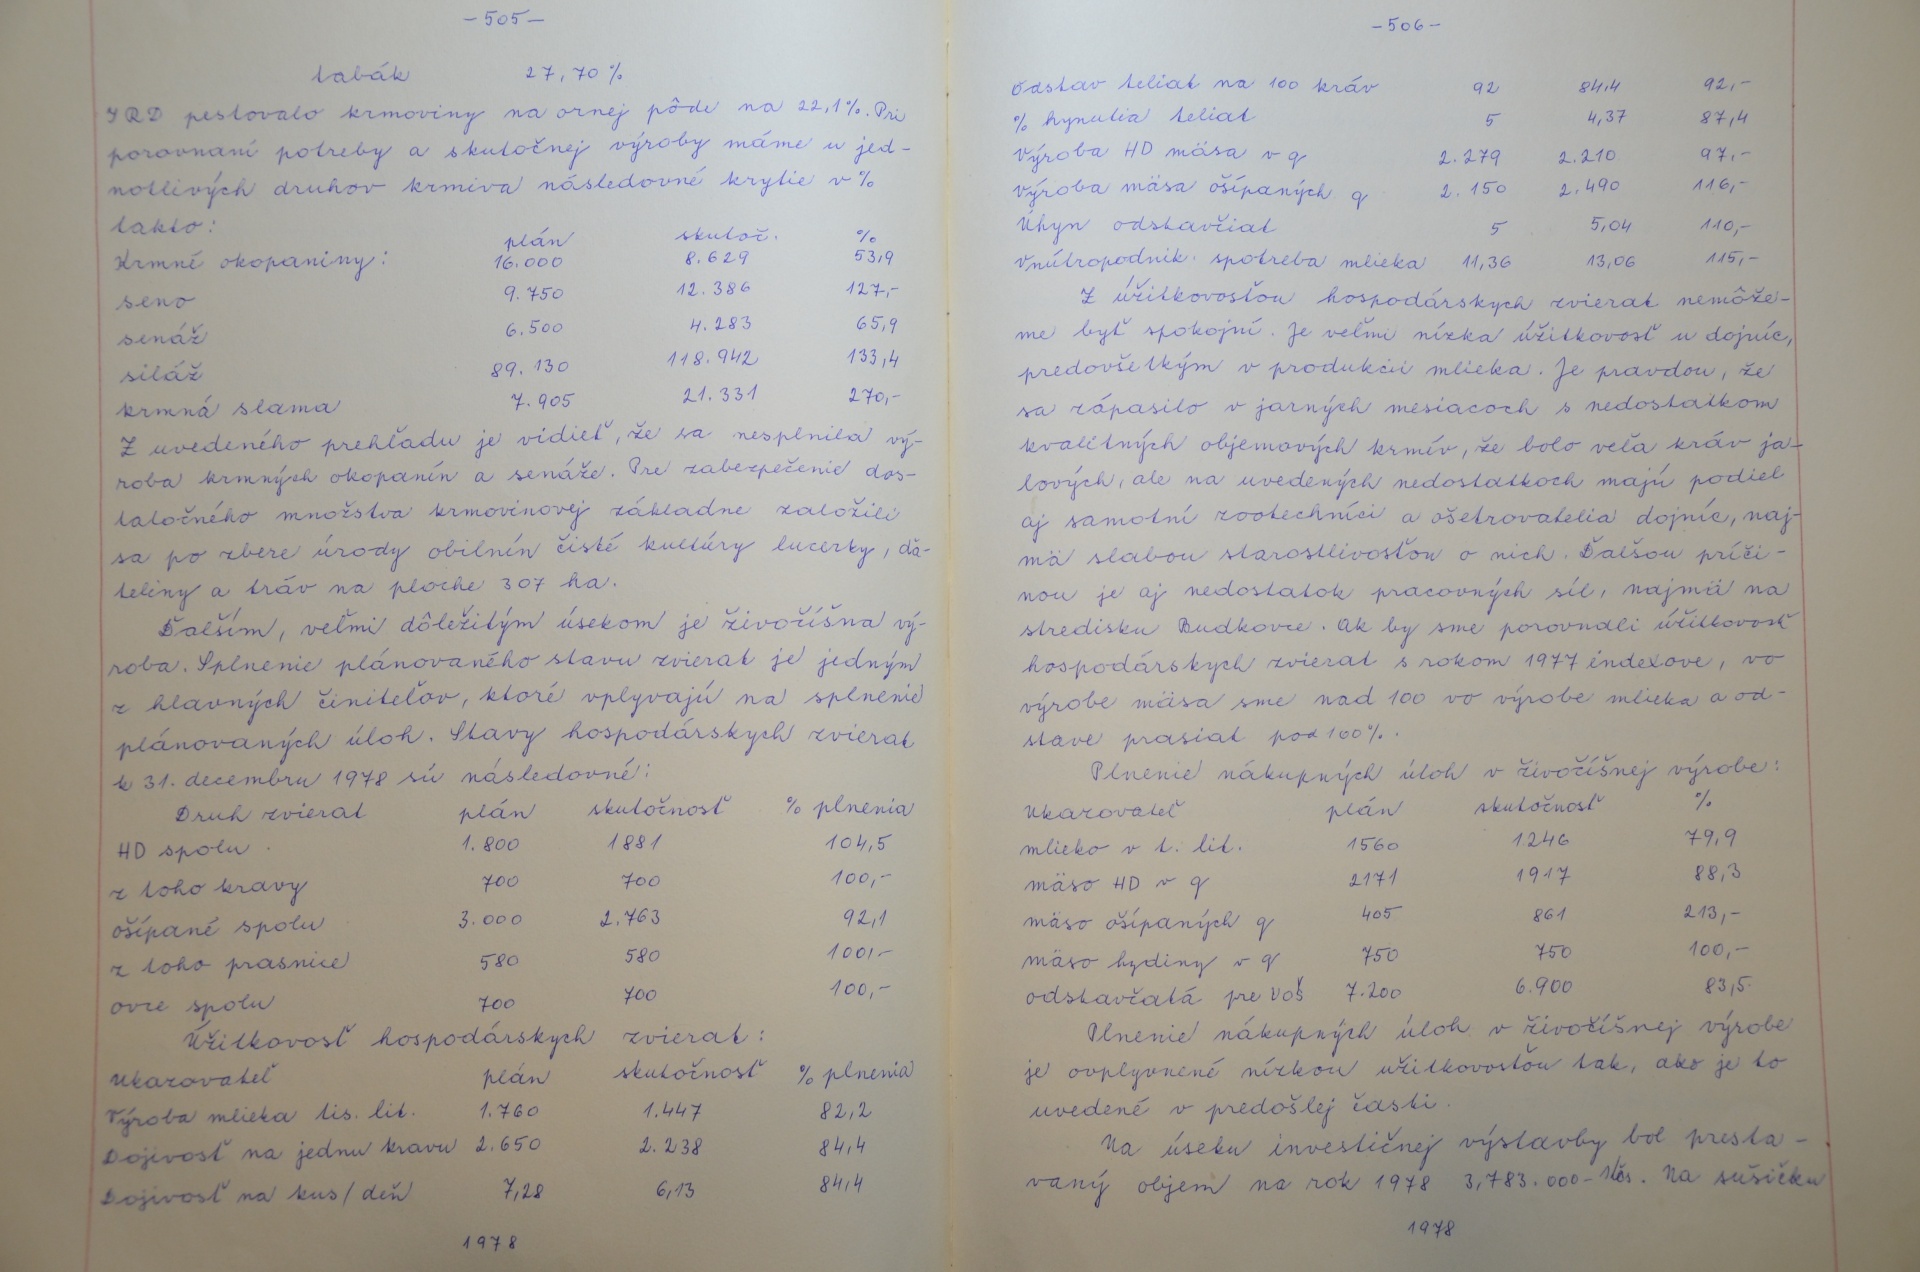 -505-
tabák 27,70%
JRD pestovalo krmoviny na ornej pôde na 22,1%. Pri
porovnaní potreby a skutočnej výroby máme u jed-
notlivých druhov krmiva následovné krytie v %
takto:
plán skutoč. %
Krmné okopaniny: 16.000 8.629 53,9
seno 9.750 12.386 127,-
senáž 6.500 4.283 65,9
siláž 89.130 118.942 133,4
krmná slama 7.905 21.331 270,-
Z uvedeného prehľadu je vidieť, že sa nesplnila vý-
roba krmných okopanín a senáže. Pre zabezpečenie dos-
tatočného množstva krmovinovej základne založili
sa po zbere úrody obilnín čisté kultúry lucerky, ďa-
teliny a tráv na ploche 307 ha.
Ďalším, veľmi dôležitým úsekom je živočíšna vý-
roba. Splnenie plánovaného stavu zvierat je jedným
z hlavných činiteľov, ktoré vplyvajú na splnenie
plánovaných úloh. Stavy hospodárskych zvierat
k 31. decembru 1978 sú následovné:
Druh zvierat plán skutočnosť % plnenia
HD spolu 1.800 1881 104,5
z toho kravy 700 700 100,-
ošípané spolu 3.000 2.763 92,1
z toho prasnice 580 580 100,-
ovce spolu 700 700 100,-
Úžitkovosť hospodárskych zvierat:
Ukazovateľ plán skutočnosť % plnenia
Výroba mlieka tis. lit. 1.760 1.447 82,2
Dojivosť na jednu kravu 2.650 2.238 84,4
Dojivosť na kus/deň 7,28 6,13 84,4
1978
-506-
Odstav teliat na 100 kráv 92 84,4 92,-
% hynutia teliat 5 4,37 87,4
Výroba HD mäsa v q 2.279 2.210 97,-
Výroba mäsa ošípaných q 2.150 2.490 116,-
Úhyn odstavčiat 5 5,04 110,-
Vnútropodnik. spotreba mlieka 11,36 13,06 115,-
Z úžitkovosťou hospodárskych zvierat nemôže-
me byť spokojní. Je veľmi nízka úžitkovosť u dojníc,
predovšetkým v produkcii mlieka. Je pravdou, že
sa zápasilo v jarných mesiacoch s nedostatkom
kvalitných objemových krmív, že bolo veľa kráv ja-
lových, ale na uvedených nedostatkoch majú podiel
aj samotní zootechnici a ošetrovatelia dojníc, naj-
mä slabou starostlivosťou o nich. Ďalšou príči-
nou je aj nedostatok pracovných síl, najmä na
stredisku Budkovce. Ak by sme porovnali úžitkovosť
hospodárskych zvierat s rokom 1977 indexove, vo
výrobe mäsa sme nad 100 vo výrobe mlieka a od-
stave prasiat pod 100%.
Plnenie nákupných úloh v živočíšnej výrobe:
Ukazovateľ plán skutočnosť %
mlieko v t. lit. 1560 1246 79,9
mäso HD v q 2171 1917 88,3
mäso ošípaných q 405 861 213,-
mäso hydiny v q 750 750 100,-
odstavčatá pre VoŠ 7.200 6.900 83,5
Plnenie nákupných úloh v živočíšnej výrobe
je ovplyvnené nízkou užitkovosťou tak, ako je to
uvedené v predošlej časti.
Na úseku investičnej výstavby bol presta-
vaný objem na rok 1978 3,783.000-Kčs. Na sušičku
1978